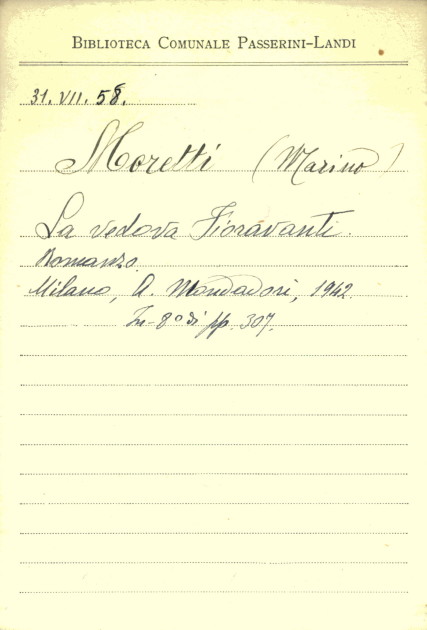 BIBLIOTECA COMUNALE PASSERINI-LANDI
31. VII. 58.
Moretti (Marino)
La vedova Fioravanti.
Romanzo.
Milano, A. Mondadori, 1942.
In-8° di pp. 307.